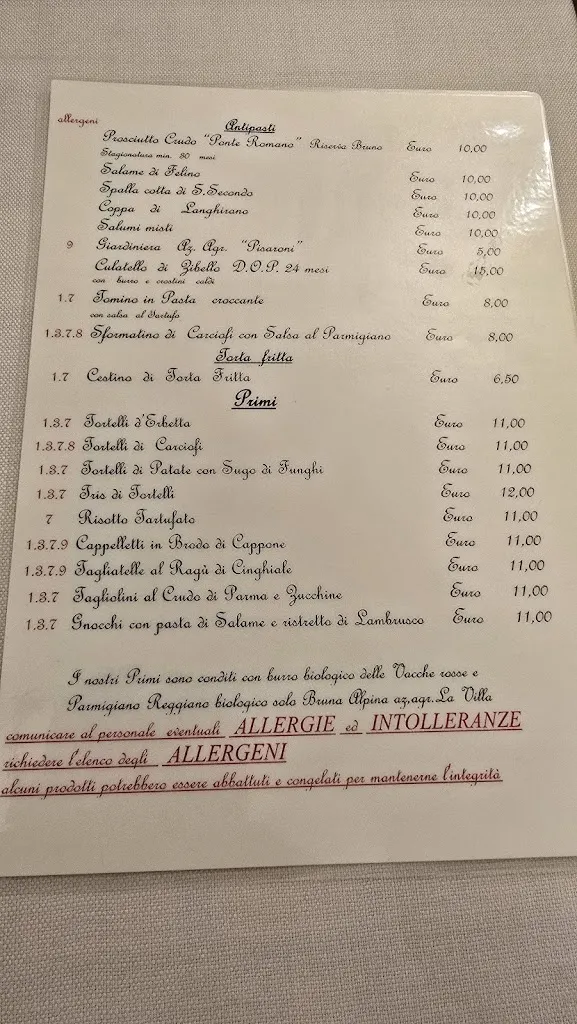 allergeni
Antipasti
Prosciutto Crudo "Ponte Romano" Riserva Bruno Euro 10,00
Stagionatura min. 30 mesi
Salame di Felino Euro 10,00
Spalla cotta di S.Secondo Euro 10,00
Coppa di Langhirano Euro 10,00
Salumi misti Euro 10,00
9 Giardiniera Az. Agr. "Pisaroni" Euro 5,00
Culatello di Zibello D.O.P. 24 mesi Euro 15,00
con burro e crostini caldi
1.7 Tomino in Pasta croccante Euro 8,00
con salsa al Tartufo
1.3.7.8 Sformatino di Carciofi con Salsa al Parmigiano Euro 8,00
Torta fritta
1.7 Cestino di Torta Fritta Euro 6,50
Primi
1.3.7 Tortelli d'Erbetta Euro 11,00
1.3.7.8 Tortelli di Carciofi Euro 11,00
1.3.7 Tortelli di Patate con Sugo di Funghi Euro 11,00
1.3.7 Tris di Tortelli Euro 12,00
7 Risotto Tartufato Euro 11,00
1.3.7.9 Cappelletti in Brodo di Cappone Euro 11,00
1.3.7.9 Tagliatelle al Ragù di Cinghiale Euro 11,00
1.3.7 Tagliolini al Crudo di Parma e Zucchine Euro 11,00
1.3.7 Gnocchi con pasta di Salame e ristretto di Lambrusco Euro 11,00
I nostri Primi sono conditi con burro biologico delle Vacche rosse e
Parmigiano Reggiano biologico solo Bruna Alpina az,agr.La Villa
comunicare al personale eventuali ALLERGIE ed INTOLLERANZE
richiedere l'elenco degli ALLERGENI
alcuni prodotti potrebbero essere abbattuti e congelati per mantenerne l'integrità